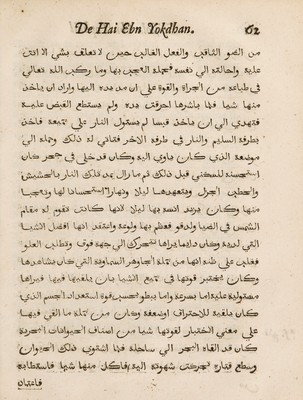 De Hai Ebn Yokdhan. 62
من الضو الثاقب والفعل الغالب حتي لا تعلق بشي الا اتت
عليه واحالته الي نفسه فحمله العجب بها وما ركب الله تعالي
في طباعه من الجراة والقوة علي ان مد يده اليها واراد ان ياخذ
منها شيا فلما باشرها احرقت يده ولم يستطع القبض عليه
فتهدي الي ان ياخذ قبسا لم يستول النار علي جميعه فاخذ
بطرفه السليم والنار في طرفه الاخر فتاتي له ذلك وحمله الي
موضعه الذي كان ياوي اليه وكان قد خلي في جحر كان
استحسنه للسكني قبل ذلك ثم ما زال يمد ذلك النار بالحشيش
والحطب الجزل ويتعهدها ليلا ونهارا استحسانا لها وتعجبا
منها وكان يزيد انسه بها ليلا لانها كانت تقوم له مقام
الشمس في الضيا والدفو فعظم بها ولوعه واعتقد انها افضل الاشيا
التي لديه وكان دايما يراها تتحرك الي جهة فوق وتطلب العلو
فغلب علي ظنه انها من جملة الجواهر السماوية التي كان يشاهدها
وكان يختبر قوتها في جميع الاشيا بان يلقيها فيها فيراها
مستولية عليه اما بسرعة واما ببطو بحسب قوة استعداد الجسم الذي
كان يلقيه للاحتراق او ضعفه وكان من جملة ما القي فيها
علي معني الاختبار لقوتها شيا من اصناف الحيوانات البحرية
كان قد القاه البحر الي ساحله فلما اشتوي ذلك الحيوان
وسطع قتاره تحركت شهوته اليه فاكل منها شيا فاستطابه
فاعتاد